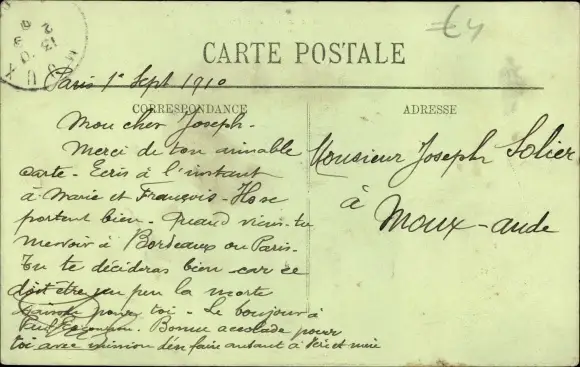 CARTE POSTALE
Paris 1er Sept 1910
CORRESPONDANCE
Mon cher Joseph.
Merci de ton aimable
carte - Ecris à l'instant
à Marie et François - Ils se
portent bien - Quand viens-tu
me voir à Bordeaux ou Paris.
Tu te décideras bien car ce
doit être un peu la morte
saison pour toi - Le bonjour à
Paul. Bonne accolade pour
toi avec mission d'en faire autant à et
ADRESSE
Monsieur Joseph Solier
à
Moux - aude